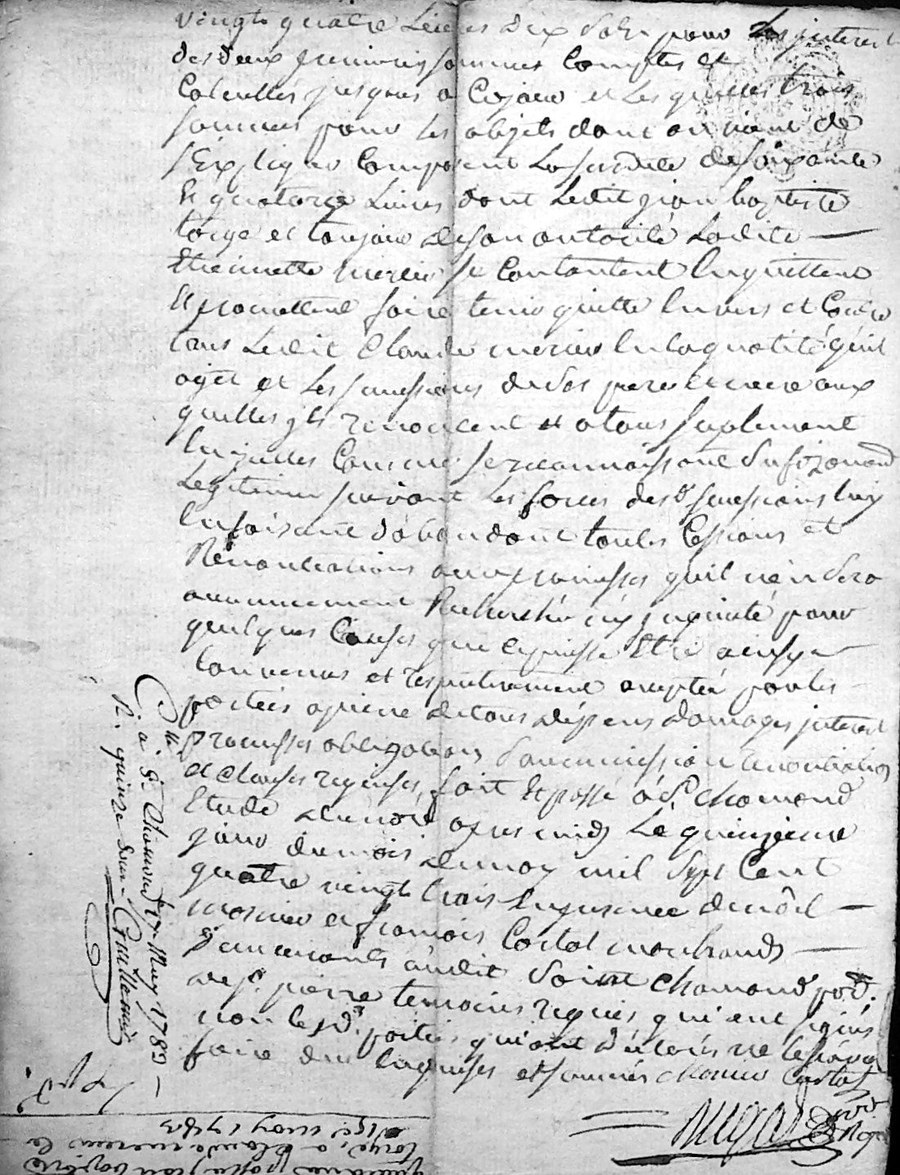 vingt quatre Livres dix Sols pour Les interest
des deux premieres sommes Comptes et
Calcullés jusques a Cejour et Lesquelles trois
sommes pour les objets dont on vient de
s'Expliquer Composent La susditte de soixante
Et quatorze Livres dont Ledit jean baptiste
et toujours de son autorité Laditte
Etiennette mercier se Contantent En quittent
Et promettent faire tenir quitte Envers et Contre
tous Ledit Claude mercier En la qualité qu'il
agit et Les successions de ses pere et mere aux
quelles ils renoncent et a tous suplement
Legitimes suivant Les forces des d successions luy
En faisant d'abondant toutes Cessions et
Renonciations avec promesses qu'il n'en sera
aucunement Recherché ny inquieté pour
quelques Causes que ce puisse Etre ainsy
Convenus et respectivement accepté par les
parties a peine de tous dépens domages interest
promesses obligations soumissions renonciations
et clauses requises fait Et passé à St Chamond
Etude du nore apres midy Le quinzieme
jour du mois de may mil sept Cent
quatre vingt trois En presence de
et francois Costat marchands
demeurants audit Saint Chamond
St pierre temoins requis qui ont signés
non les d parties qui ont déclarés ne le sçavoir
faire de ce Enquises et sommés
a St Chamond may 1783
R. quinze sous
may 1783